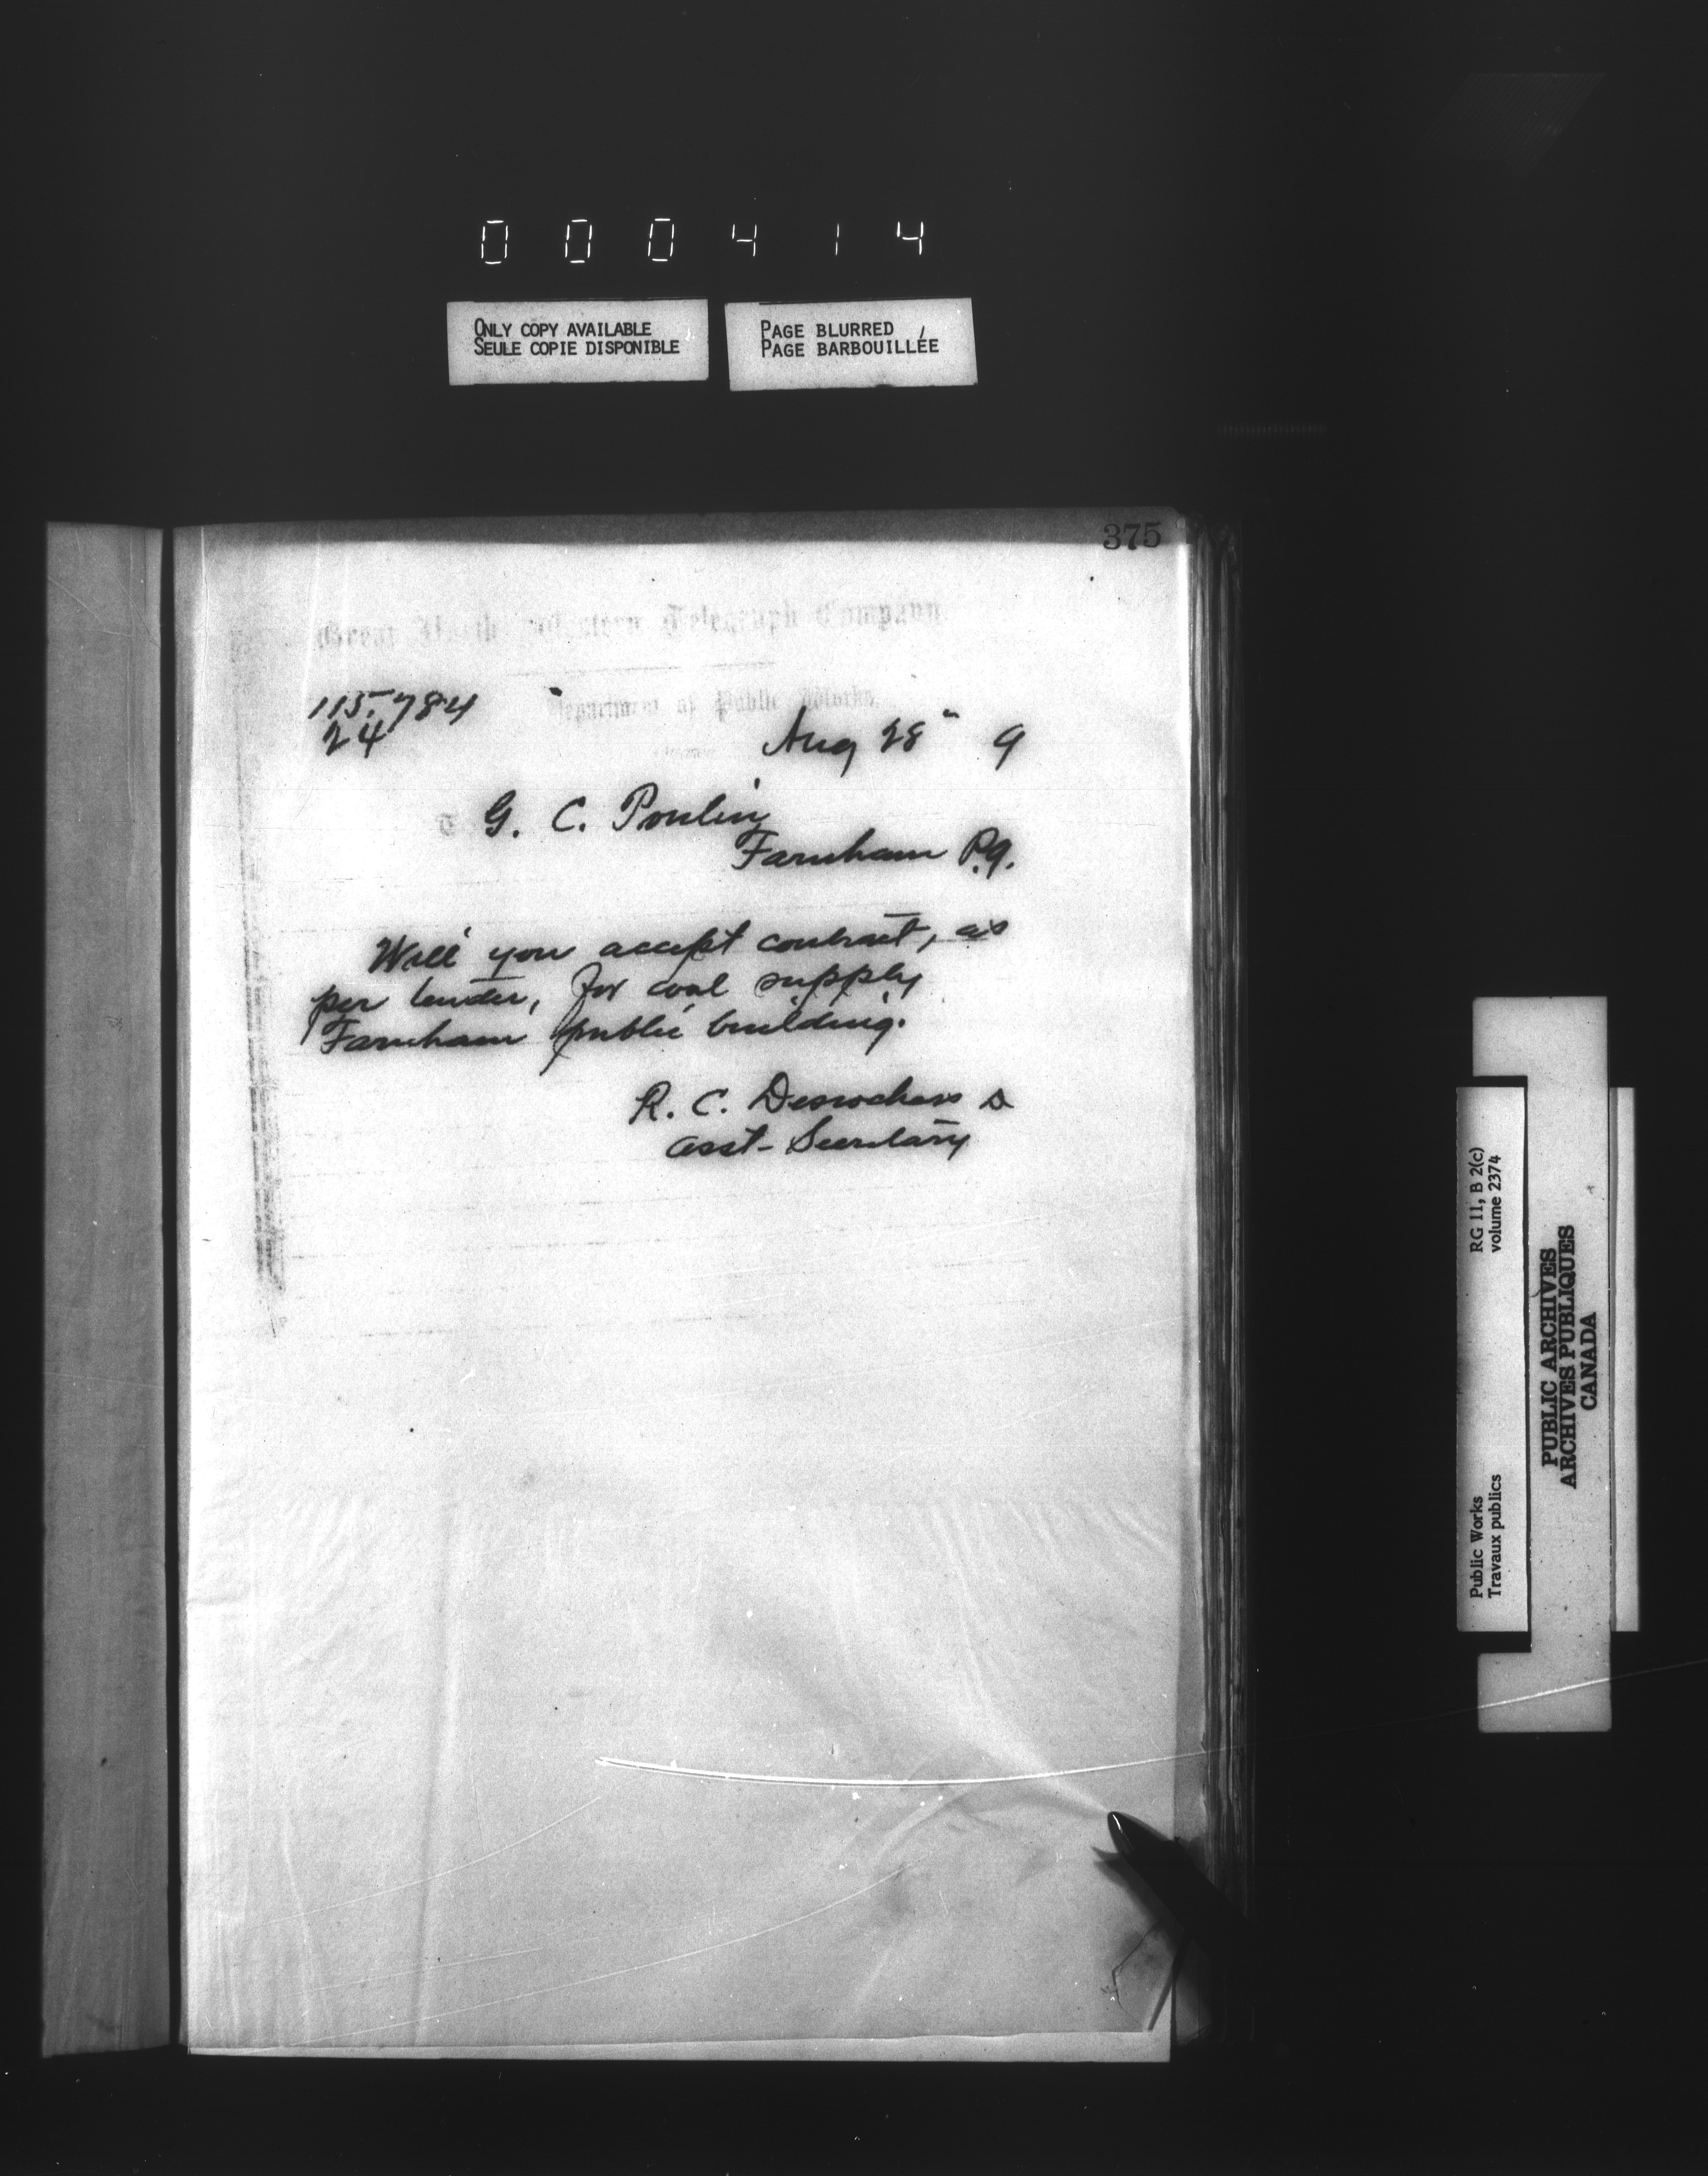 000414
ONLY COPY AVAILABLE
SEULE COPIE DISPONIBLE
PAGE BLURRED
PAGE BARBOUILLÉE
375
Great North Western Telegraph Company
Department of Public Works.
115.784
24
Aug 28" 9
G. C. Poulin
Farnham P.Q.
Will you accept contract, as
per tender, for coal supply
Farnham public building.
R. C. Desrochers
Asst-Secretary
RG 11, B 2(c)
volume 2374
Public Works
Travaux publics
PUBLIC ARCHIVES
ARCHIVES PUBLIQUES
CANADA